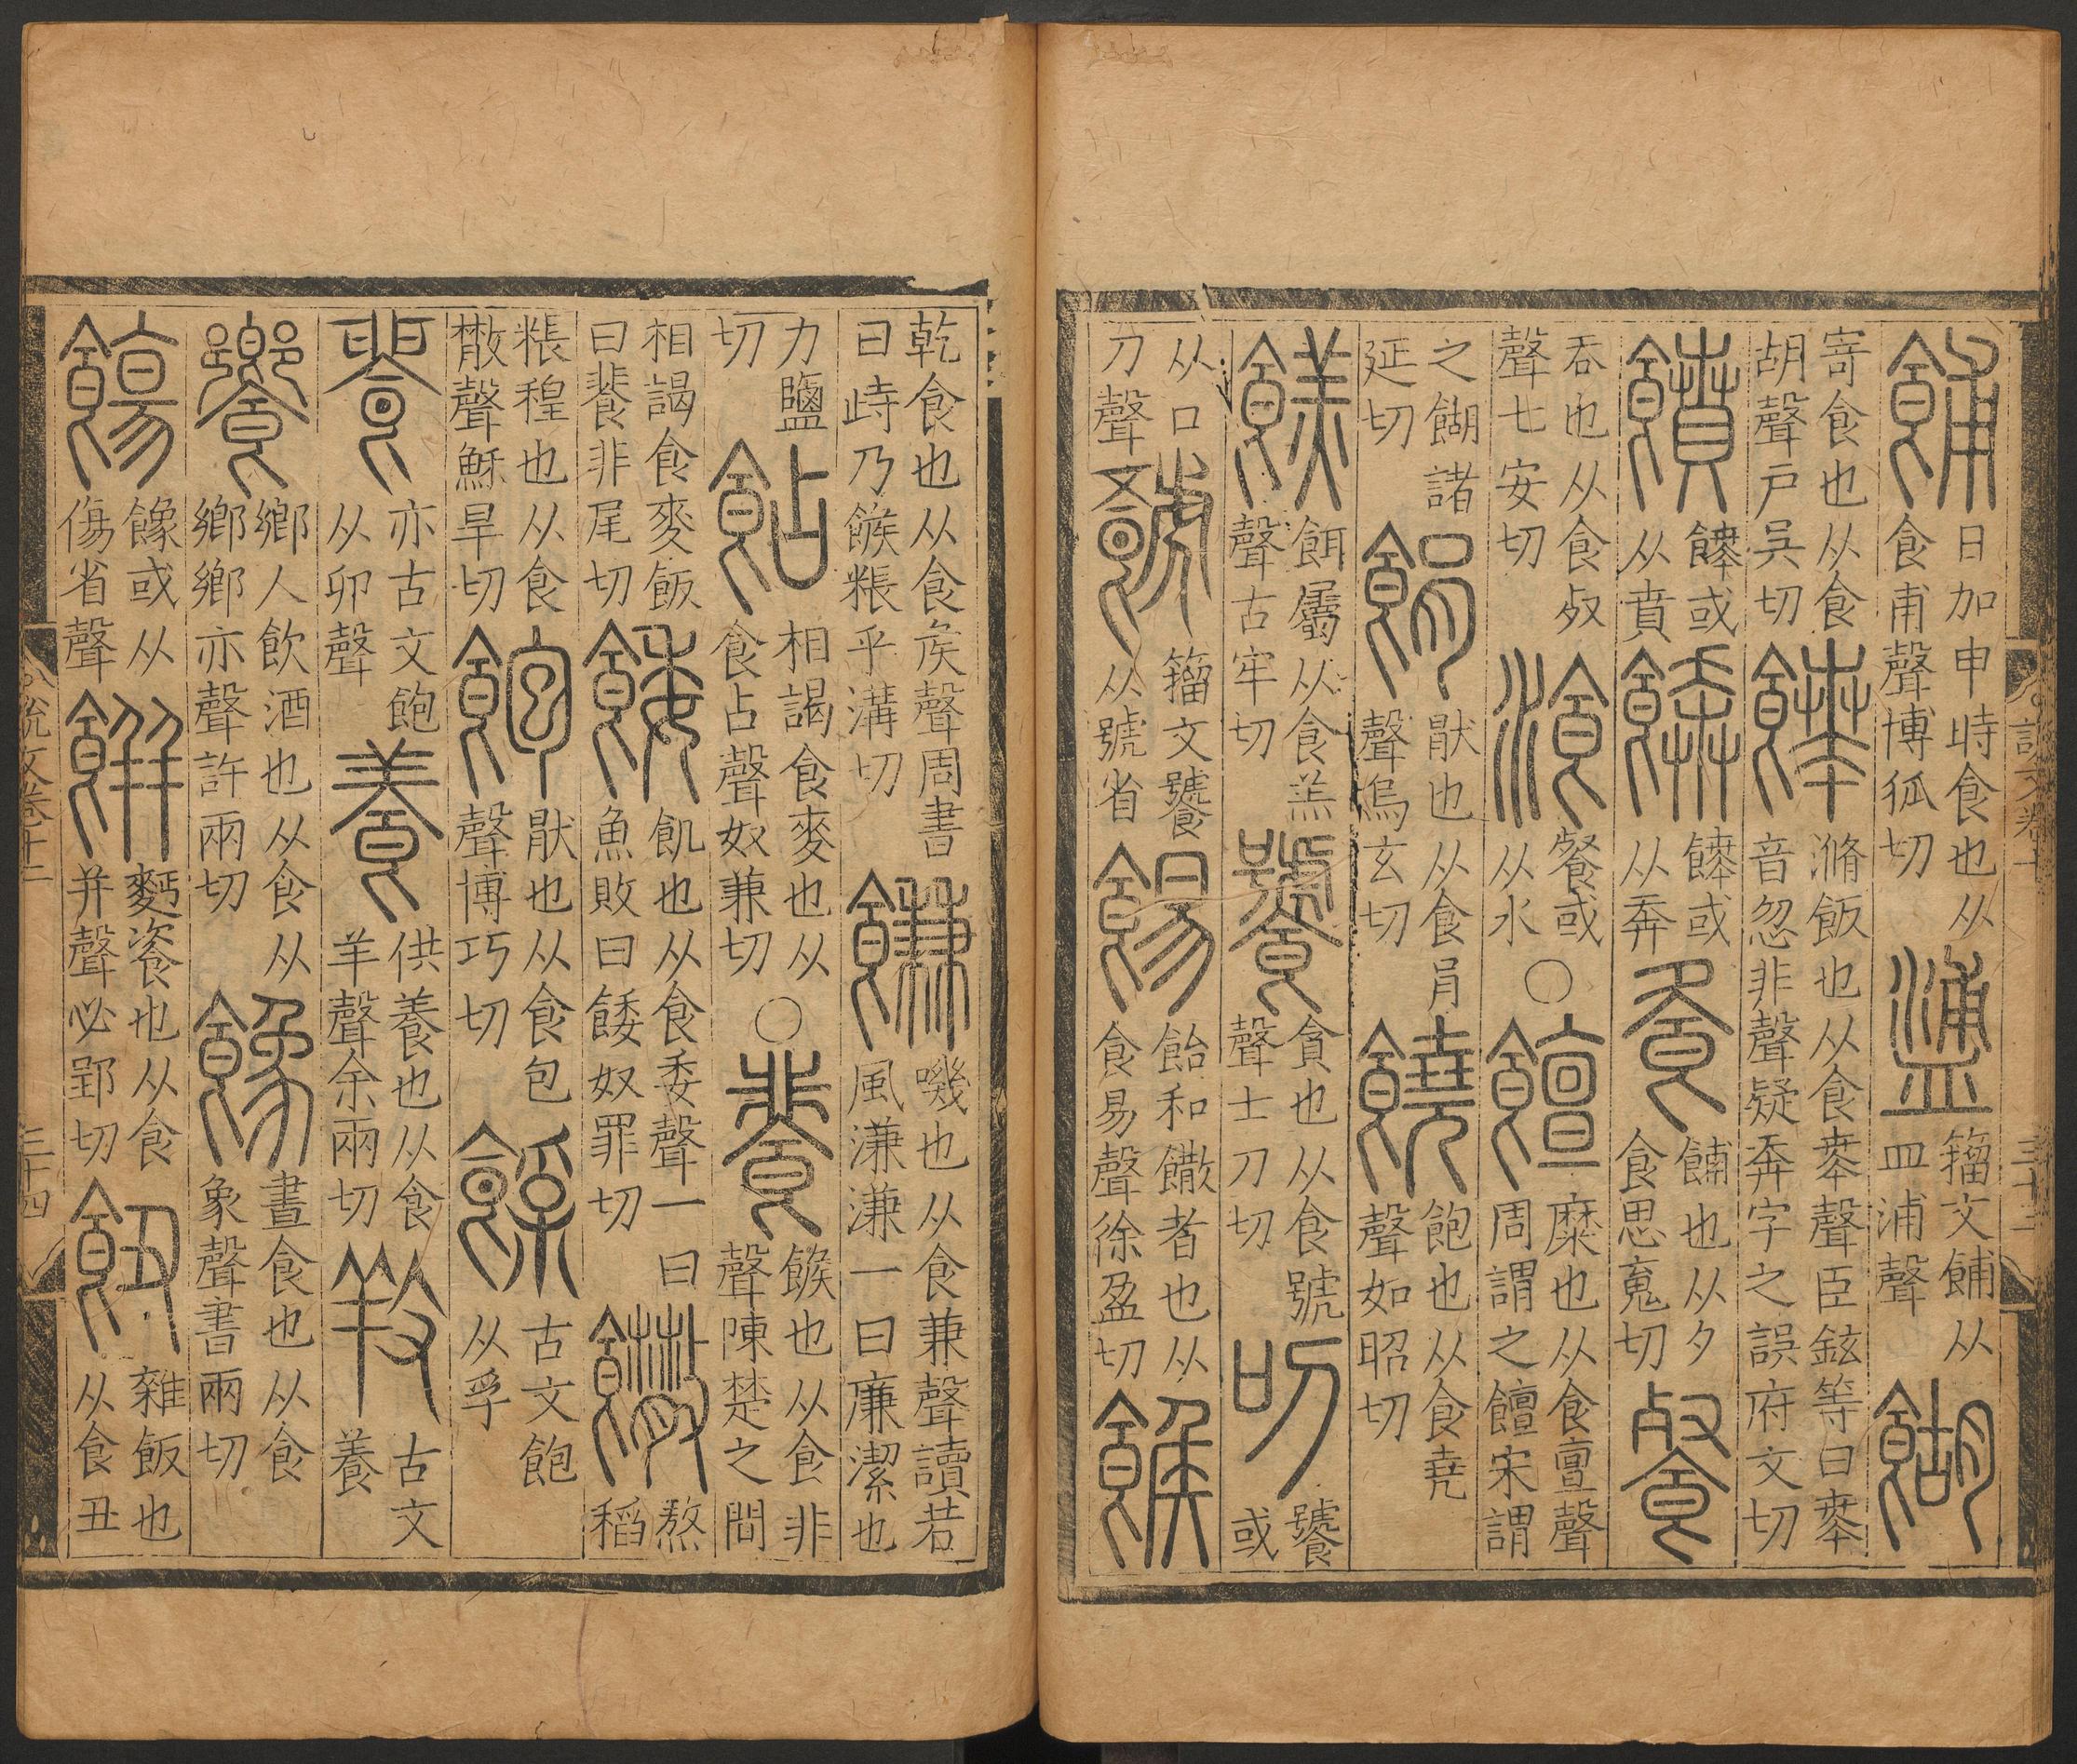 餔日加申時食也从食甫聲博狐切𥂈籒文餔从皿浦聲餬
寄食也从食胡聲戶吳切䭯滫飯也从食𠦪聲臣鉉等曰𠦪音忽非聲疑奔字之誤府文切
饙䭯或从賁餴䭯或从奔飧餔也从夕食思䰟切餐
吞也从食𣦼聲七安切湌餐或从水○饘糜也从食亶聲周謂之饘宋謂
之餬諸延切䬼猒也从食肙聲烏玄切饒飽也从食堯聲如昭切
餻餌屬从食羔聲古牢切饕貪也从食號聲土刀切叨饕或
从口刀聲籒文饕从號省餳飴和饊者也从食昜聲徐盈切餱
乾食也从食矦聲周書曰峙乃餱粻乎溝切䭑嘰也从食兼聲讀若風溓溓一曰廉潔也
力鹽切䬯相謁食麥也从食占聲奴兼切○餥餱也从食非聲陳楚之閒
相謁食麥飯曰餥非尾切餧飢也从食委聲一曰魚敗曰餧奴罪切饊熬稻
粻䅣也从食㪔聲穌旱切飽猒也从食包聲博巧切古文飽从孚
亦古文飽从卯聲養供養也从食羊聲余兩切羖古文養
饗鄉人飲酒也从食从鄉鄉亦聲許兩切餯晝食也从食象聲書兩切
餯或从傷省聲餅麪餈也从食并聲必郢切䬦雜飯也从食丑